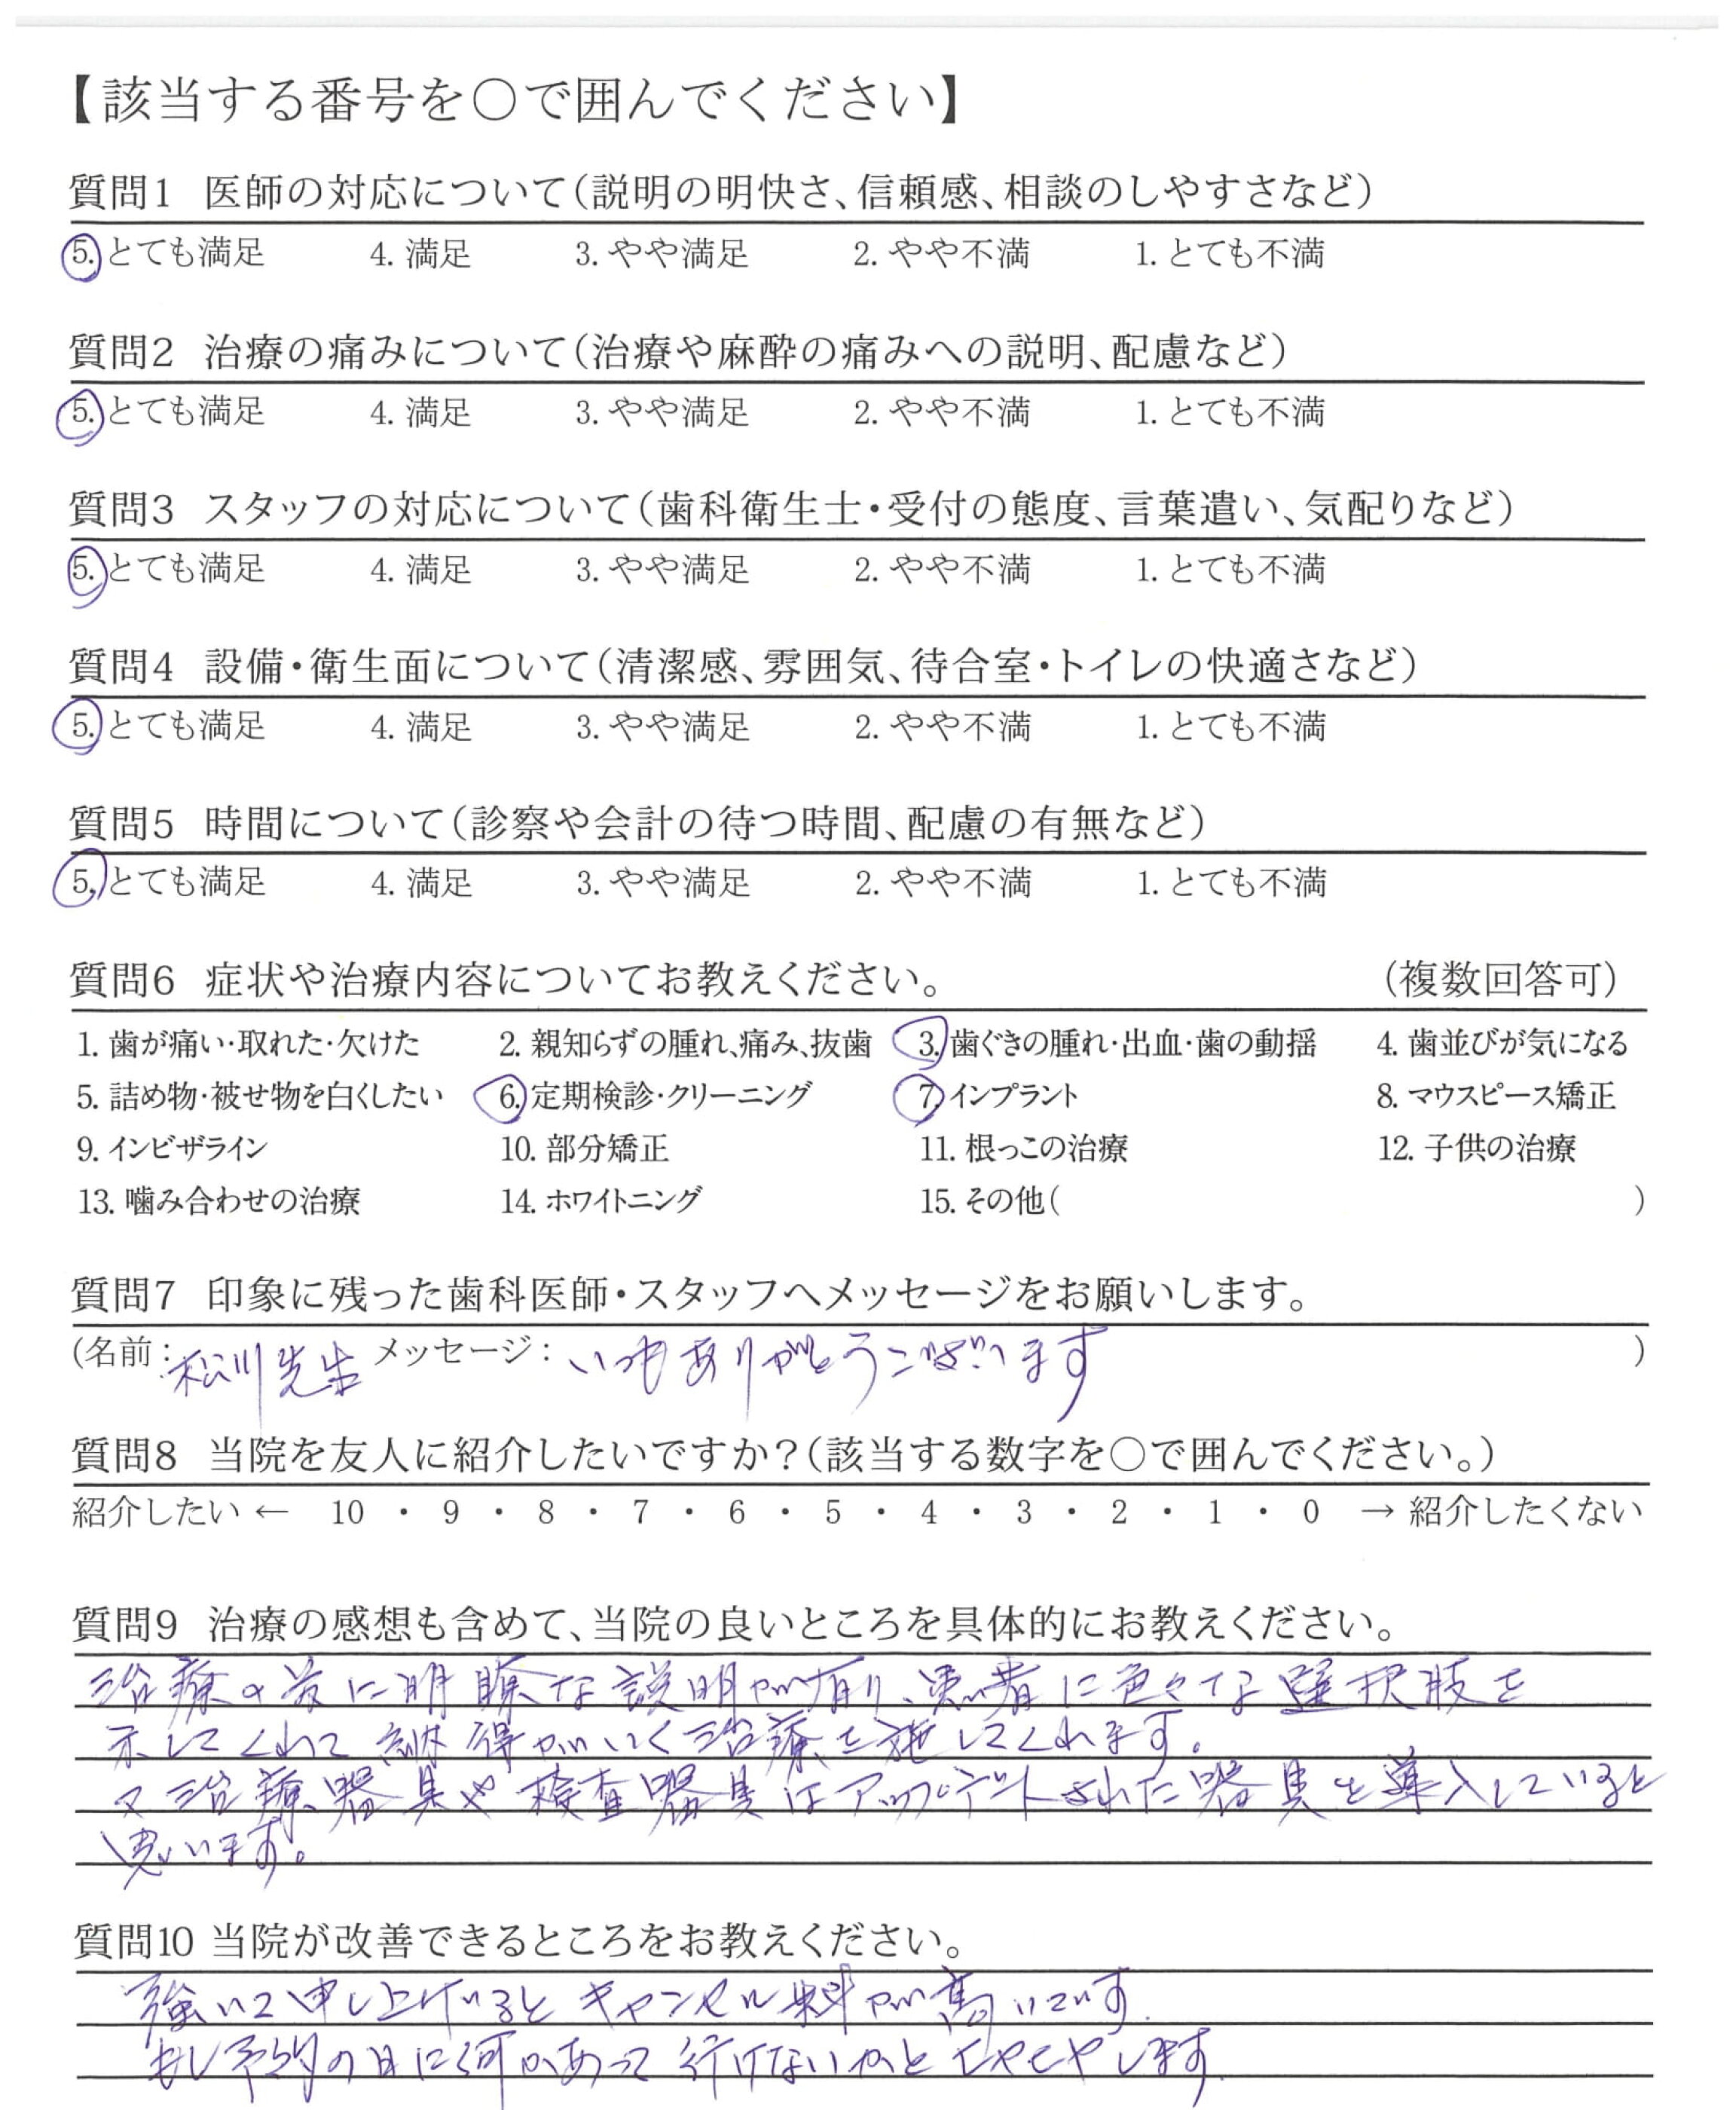 【該当する番号を○で囲んでください】
質問1 医師の対応について(説明の明快さ、信頼感、相談のしやすさなど)
5. とても満足 4. 満足 3. やや満足 2. やや不満 1. とても不満
質問2 治療の痛みについて(治療や麻酔の痛みへの説明、配慮など)
5. とても満足 4. 満足 3. やや満足 2. やや不満 1. とても不満
質問3 スタッフの対応について(歯科衛生士・受付の態度、言葉遣い、気配りなど)
5. とても満足 4. 満足 3. やや満足 2. やや不満 1. とても不満
質問4 設備・衛生面について(清潔感、雰囲気、待合室・トイレの快適さなど)
5. とても満足 4. 満足 3. やや満足 2. やや不満 1. とても不満
質問5 時間について(診察や会計の待つ時間、配慮の有無など)
5. とても満足 4. 満足 3. やや満足 2. やや不満 1. とても不満
質問6 症状や治療内容についてお教えください。 (複数回答可)
1. 歯が痛い・取れた・欠けた 2. 親知らずの腫れ、痛み、抜歯 3. 歯ぐきの腫れ・出血・歯の動揺 4. 歯並びが気になる
5. 詰め物・被せ物を白くしたい 6. 定期検診・クリーニング 7. インプラント 8. マウスピース矯正
9. インビザライン 10. 部分矯正 11. 根っこの治療 12. 子供の治療
13. 噛み合わせの治療 14. ホワイトニング 15. その他( )
質問7 印象に残った歯科医師・スタッフへメッセージをお願いします。
(名前:松川先生 メッセージ:いつもありがとうございます )
質問8 当院を友人に紹介したいですか?(該当する数字を○で囲んでください。)
紹介したい ← 10 ・ 9 ・ 8 ・ 7 ・ 6 ・ 5 ・ 4 ・ 3 ・ 2 ・ 1 ・ 0 → 紹介したくない
質問9 治療の感想も含めて、当院の良いところを具体的にお教えください。
治療の前に明瞭な説明が有り、患者に色々な選択肢を
示してくれて納得がいく治療を施してくれます。
又治療器具や検査器具はアップデートされた器具を導入していると
思います。
質問10 当院が改善できるところをお教えください。
強いて申し上げるとキャンセル料が高いです.
もし予約の日に何かあって行けないかとヒヤヒヤします.